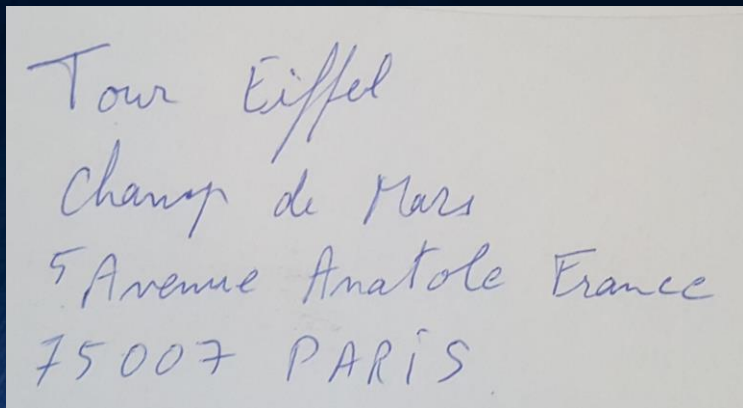 Tour Eiffel
Champ de Mars
5 Avenue Anatole France
75007 PARIS